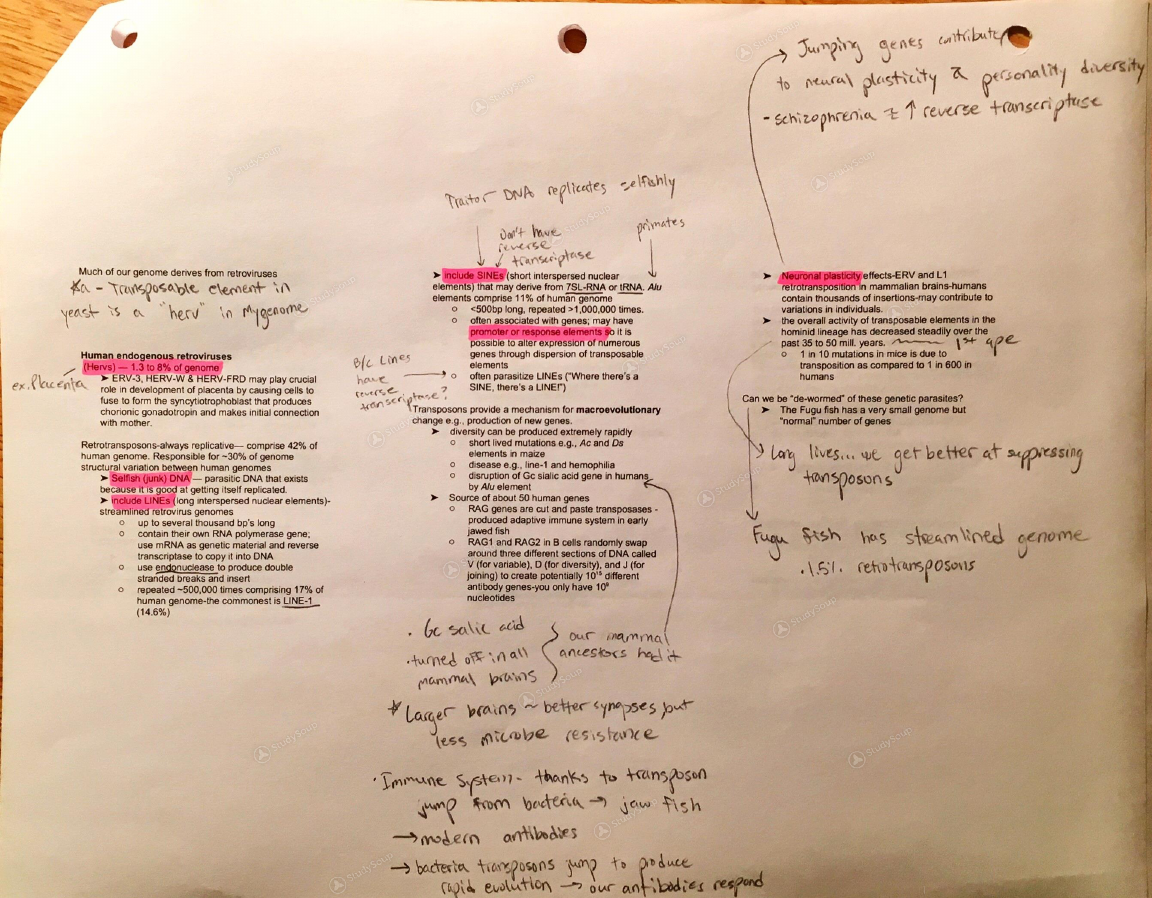 Much of our genome derives from retroviruses
a - Transposable element in
yeast is a "herv" in Mygenome
Human endogenous retroviruses
(Hervs) — 1.3 to 8% of genome
ex. Placenta
➤ ERV-3, HERV-W & HERV-FRD may play crucial
role in development of placenta by causing cells to
fuse to form the syncytiotrophoblast that produces
chorionic gonadotropin and makes initial connection
with mother.
Retrotransposons-always replicative— comprise 42% of
human genome. Responsible for ~30% of genome
structural variation between human genomes
➤ Selfish (junk) DNA — parasitic DNA that exists
because it is good at getting itself replicated.
➤ include LINEs (long interspersed nuclear elements)-
streamlined retrovirus genomes
o up to several thousand bp's long
o contain their own RNA polymerase gene;
use mRNA as genetic material and reverse
transcriptase to copy it into DNA
o use endonuclease to produce double
stranded breaks and insert
o repeated ~500,000 times comprising 17% of
human genome-the commonest is LINE-1
(14.6%)
Traitor DNA replicates selfishly
Don't have
reverse
transcriptase
primates
➤ include SINEs (short interspersed nuclear
elements) that may derive from 7SL-RNA or tRNA. Alu
elements comprise 11% of human genome
o <500bp long, repeated >1,000,000 times.
o often associated with genes; may have
promoter or response elements so it is
possible to alter expression of numerous
genes through dispersion of transposable
elements
B/c. Lines
have
reverse
transcriptase?
o often parasitize LINEs ("Where there's a
SINE, there's a LINE!")
Transposons provide a mechanism for macroevolutionary
change e.g., production of new genes.
➤ diversity can be produced extremely rapidly
o short lived mutations e.g., Ac and Ds
elements in maize
o disease e.g., line-1 and hemophilia
o disruption of Gc sialic acid gene in humans
by Alu element
➤ Source of about 50 human genes
o RAG genes are cut and paste transposases -
produced adaptive immune system in early
jawed fish
o RAG1 and RAG2 in B cells randomly swap
around three different sections of DNA called
V (for variable), D (for diversity), and J (for
joining) to create potentially 10¹⁵ different
antibody genes-you only have 10⁹
nucleotides
· Gc salic acid
· turned off in all
mammal brains
our mammal
ancestors had it
* Larger brains ~ better synapses but
less microbe resistance
· Immune System- thanks to transposon
jump from bacteria → jaw fish
→ modern antibodies
→ bacteria transposons jump to produce
rapid evolution → our antibodies respond
→ Jumping genes contribute
to neural plasticity & personality diversity
- schizophrenia ↑ reverse transcriptase
➤ Neuronal plasticity effects-ERV and L1
retrotransposition in mammalian brains-humans
contain thousands of insertions-may contribute to
variations in individuals.
➤ the overall activity of transposable elements in the
hominid lineage has decreased steadily over the
past 35 to 50 mill. years. 1st ape
o 1 in 10 mutations in mice is due to
transposition as compared to 1 in 600 in
humans
Can we be "de-wormed" of these genetic parasites?
➤ The Fugu fish has a very small genome but
"normal" number of genes
Long lives... we get better at suppressing
transposons
Fugu fish has streamlined genome
· 15% retrotransposons
StudySoup